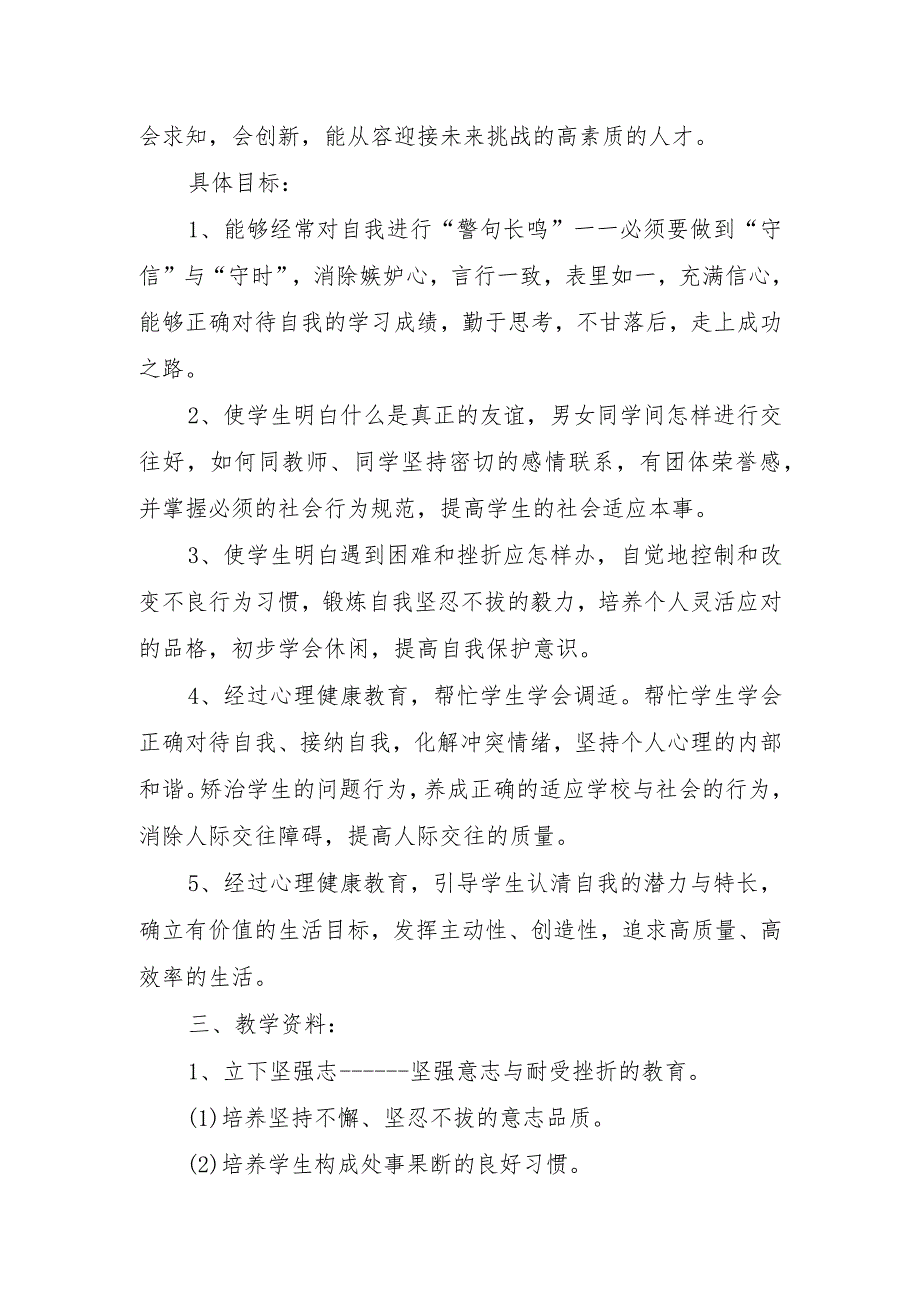 会求知，会创新，能从容迎接未来挑战的高素质的人才。
具体目标：
1、能够经常对自我进行“警句长鸣”一一必须要做到“守
信”与“守时”，消除嫉妒心，言行一致，表里如一，充满信心，
能够正确对待自我的学习成绩，勤于思考，不甘落后，走上成功
之路。
2、使学生明白什么是真正的友谊，男女同学间怎样进行交
往好，如何同教师、同学坚持密切的感情联系，有团体荣誉感，
并掌握必须的社会行为规范，提高学生的社会适应本事。
3、使学生明白遇到困难和挫折应怎样办，自觉地控制和改
变不良行为习惯，锻炼自我坚忍不拔的毅力，培养个人灵活应对
的品格，初步学会休闲，提高自我保护意识。
4、经过心理健康教育，帮忙学生学会调适。帮忙学生学会
正确对待自我、接纳自我，化解冲突情绪，坚持个人心理的内部
和谐。矫治学生的问题行为，养成正确的适应学校与社会的行为，
消除人际交往障碍，提高人际交往的质量。
5、经过心理健康教育，引导学生认清自我的潜力与特长，
确立有价值的生活目标，发挥主动性、创造性，追求高质量、高
效率的生活。
三、教学资料：
1、立下坚强志------坚强意志与耐受挫折的教育。
(1)培养坚持不懈、坚忍不拔的意志品质。
(2)培养学生构成处事果断的良好习惯。